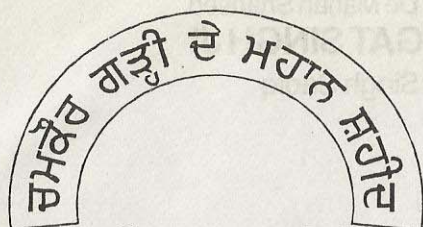 ਚਮਕੌਰ ਗੜ੍ਹੀ ਦੇ ਮਹਾਨ ਸ਼ਹੀਦ